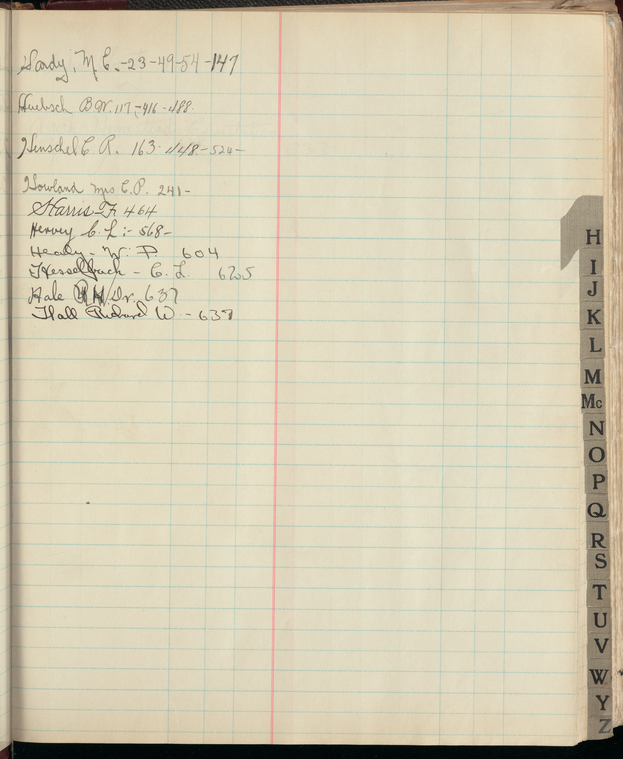 Hardy, M E.-23-49-54-147
Huebsch B W. 117-416-488.
Henschel C R. 163-448-524-
Howland Mrs C.P. 241-
Harris F. 464
Hervey C. L :- 568-
Healy - W. P. 604
Hesselbach - C. L. 625
Hale H/Dr. 637
Hall Richard W - 637
H
I
J
K
L
M
Mc
N
O
P
Q
R
S
T
U
V
W
Y
Z